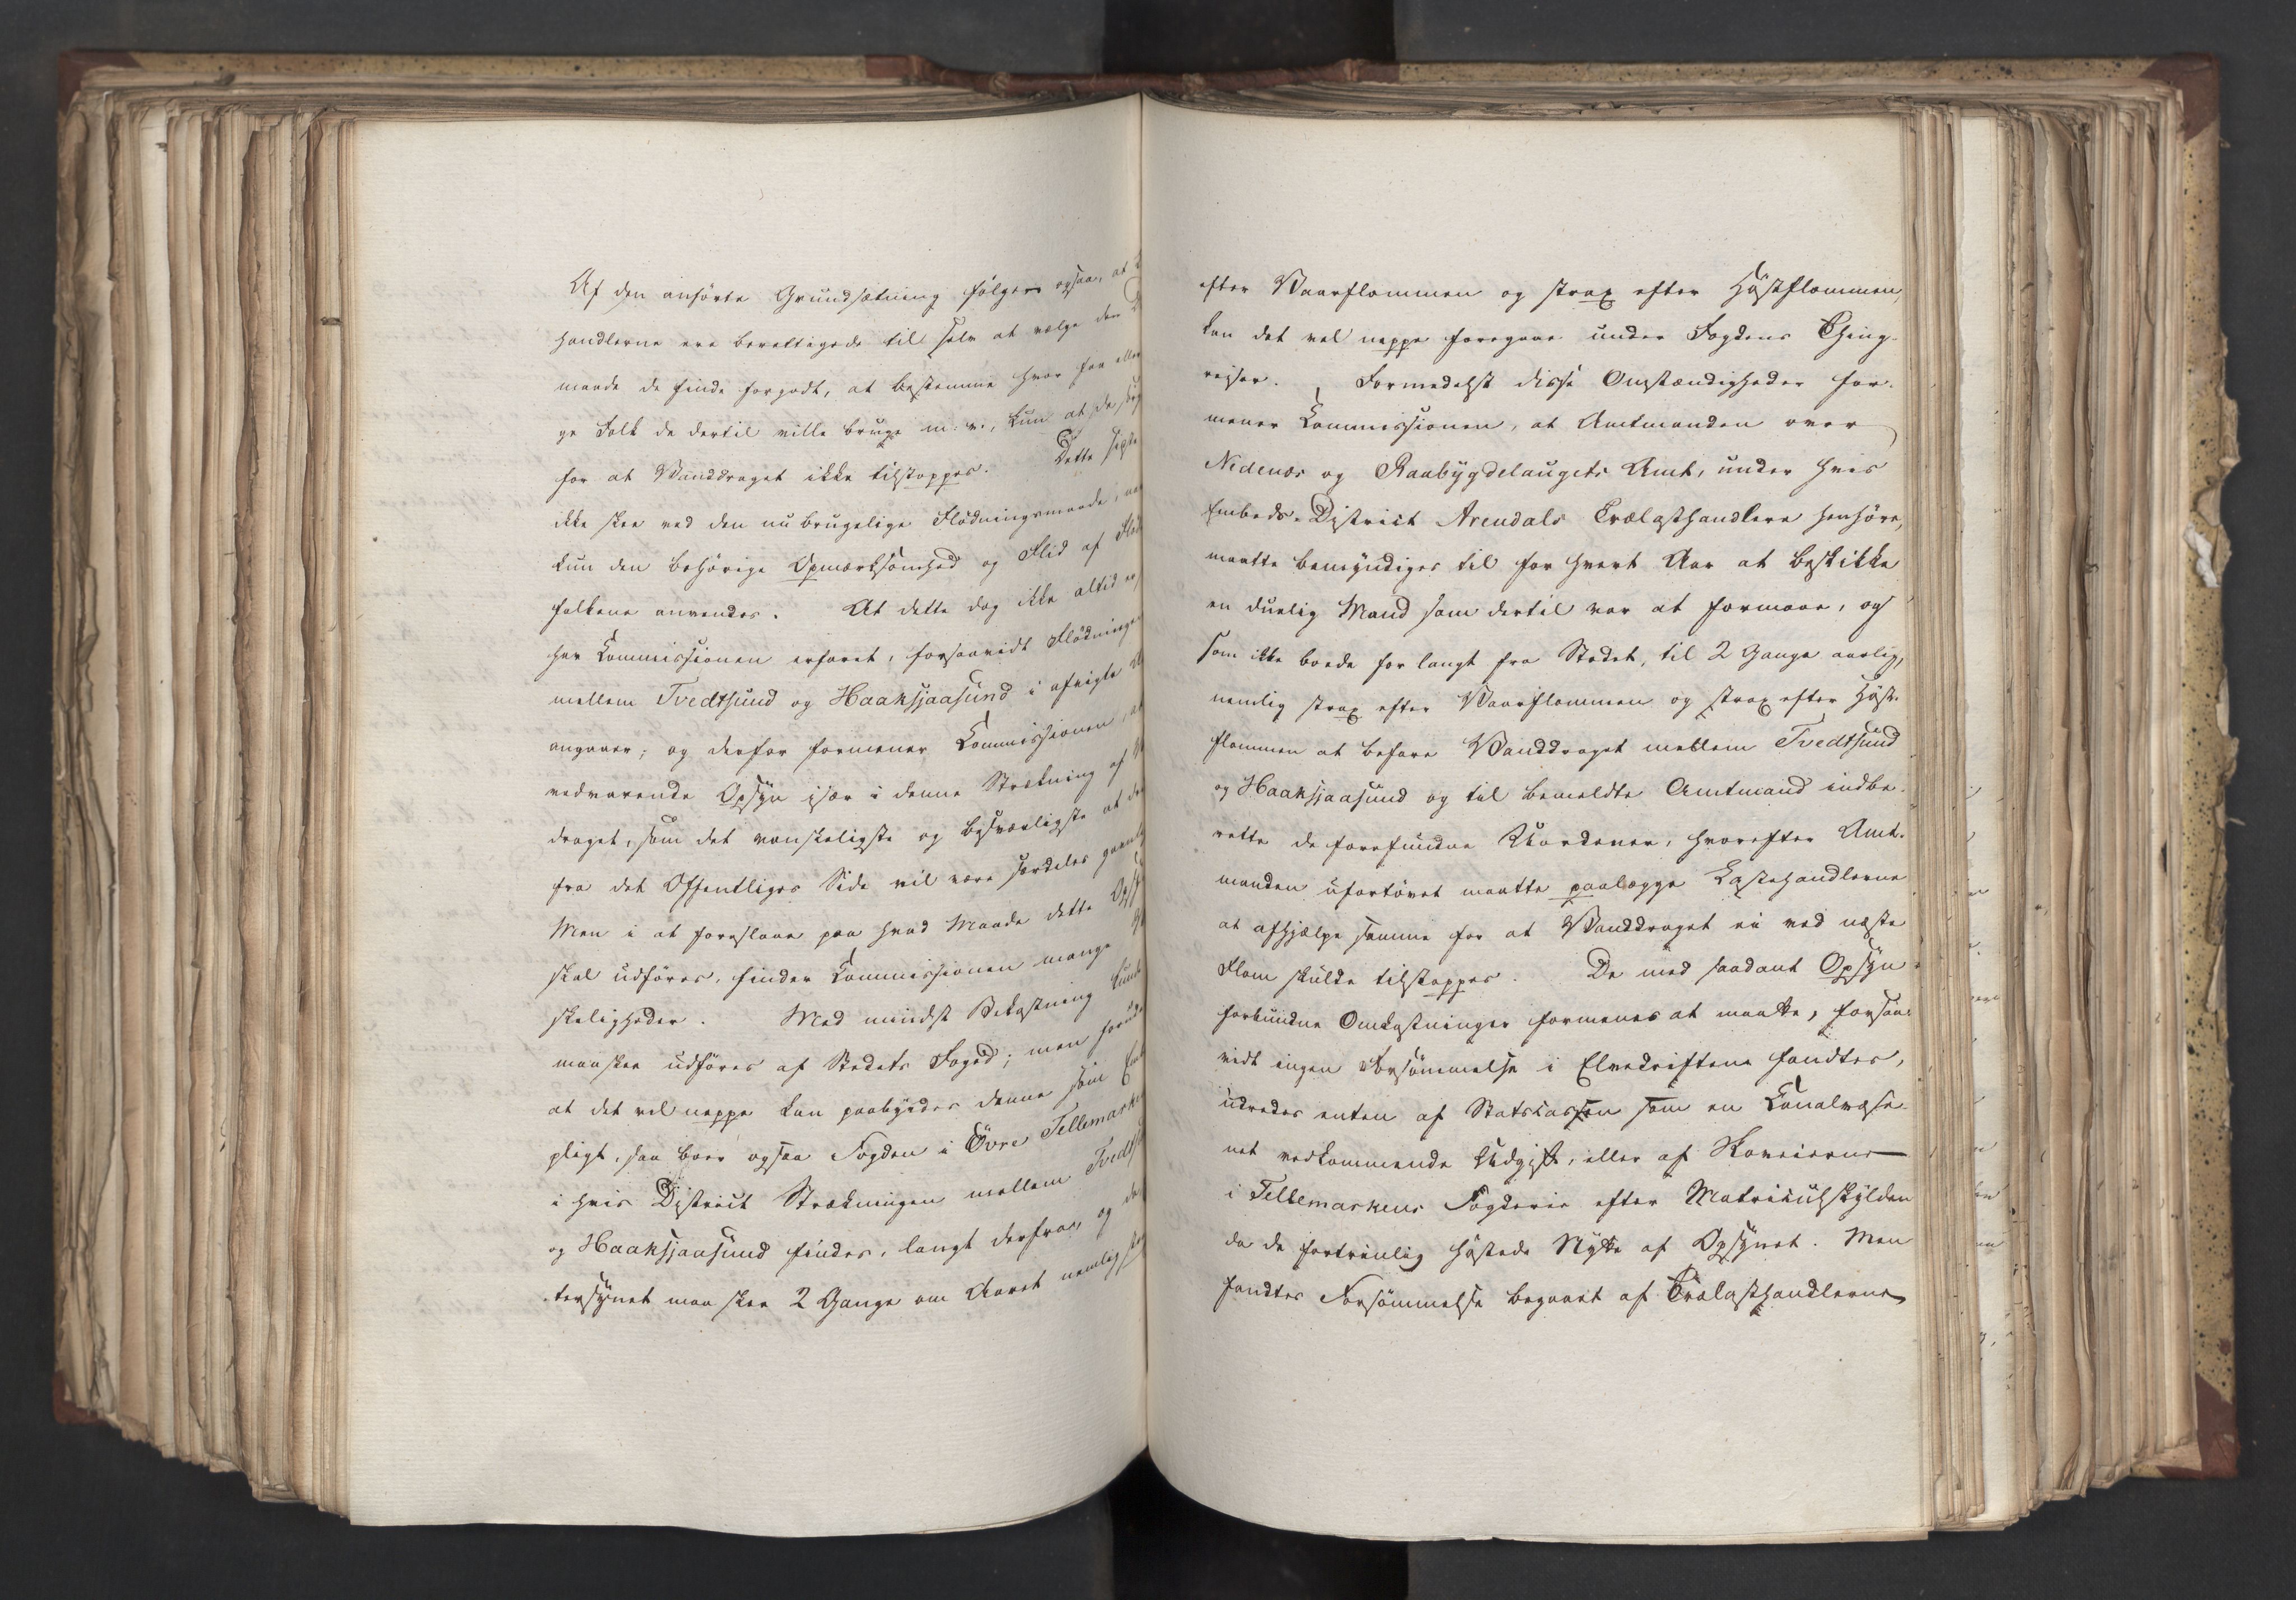 Af den anførte Grundsætning følger ogsaa, at
handlerne ere berettigede til selv at vælge den
maade de finde forgodt, at bestemme hvor faa eller
ge Folk de dertil ville bruge m: v:, kun at de sør
for at Vanddraget ikke tilstoppes. Dette
ikke skee ved den nu brugelige Flødningsmaade, naar
kun den behørige Opmærksomhed og Flid af Flød
folkene anvendes. At dette dog ikke altid er
har Commissionen erfaret, forsaavidt Flødningen
mellem Tvedtsund og Haaksjaasund i afvigte
angaaer; og derfor formener Commissionen, at
vedvarende Opsyn især i denne Strækning af
draget, som det vanskeligste og besværligste at
fra det Offentliges Side vil være særdeles gavnlig
Men i at foreslaae paa hvad Maade dette Ops
skal udføres, finder Commissionen mange
skeligheder. Med mindst Bekostning kunde
maaskee udføres af Stedets Foged; men foruden
at det vel neppe kan paabyrdes denne som Em
pligt, saa boer ogsaa Fogden i Övre Tellemarken
i hvis District Strækningen mellem Tvedts
og Haaksjaasund findes, langt derfra, og da
tersynet maa skee 2 Gange om Aaret nemlig strax
efter Vaarflommen og strax efter Høstflommen,
kan det vel neppe foregaae under Fogdens Thing-
reiser. Formedelst disse Omstændigheder for-
mener Commissionen, at Amtmanden over
Nedenæs og Raabygdelaugets Amt, under hvis
Embeds-District Arendals Trælasthandlere henhøre,
maatte bemyndiges til for hvert Aar at beskikke
en duelig Mand som dertil var at formaae, og
som ikke boede for langt fra Stedet, til 2 Gange aarlig,
nemlig strax efter Vaarflommen og strax efter Høst-
flommen at befare Vanddraget mellem Tvedtsund
og Haaksjaasund og til bemeldte Amtmand indbe-
rette de forefundne Uordener, hvorefter Amt-
manden ufortøvet maatte paalægge Lastehandlerne
at afhjælpe samme for at Vanddraget ei ved næste
Flom skulde tilstoppes. De med saadant Opsyn
forbundne Omkostninger formenes at maatte, forsaa-
vidt ingen Forsømmelse i Elvedriften fandtes,
udredes enten af Statscassen som en Canalvæse-
net vedkommende Udgift, eller af Skoveierne
i Tellemarkens Fogderie efter Matriculskylden
da de fortrinlig høstede Nytte af Opsynet. Men
fandtes Forsømmelse begaaet af Trælasthandlerne